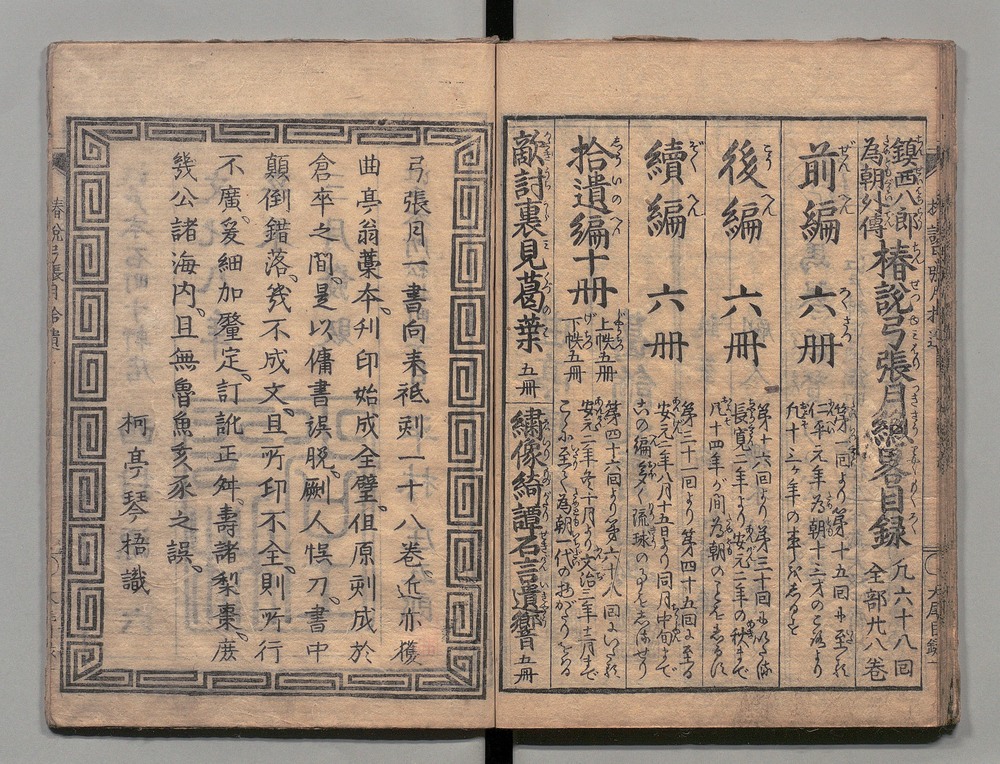 鎮西八郎
為朝外傳
椿說弓張月總畧目録
凢六十八回
全部廾八卷
前編 六冊
第一回より第十五回に至れり
仁平元年為朝十三才のころより
凢十三ケ年の事をしるせり
後編 六冊
第十六回より第三十回に
長寛二年より安元二年の秋まで
凡十四年が間為朝のことをしるせり
續編 六冊
第三十一回より第四十五回に至る
安元二年八月十五日より同月中旬まで
この編多く琉球のことをしるせり
拾遺編十冊
上帙五冊
下帙五冊
第四十六回より第六十八回にいたれり
安元二年冬十月より文治三年十二月まで
こゝに至て為朝一代のものがたりをはる
敵討裏見葛葉 五冊
繍像綺譚石言遺響 五冊
弓張月一書向来祗刻一十八卷、近亦獲
曲亭翁藁本、刋印始成全璧、但原刻成於
倉卒之間、是以傭書誤脱、劂人悞刀、書中
顛倒錯落、幾不成文、且所印不全、則所行
不廣、爰細加釐定、訂訛正舛、壽諸梨棗、庶
幾公諸海内、且無魯魚亥豕之誤、
柯亭琴梧識
椿說弓張月拾遺